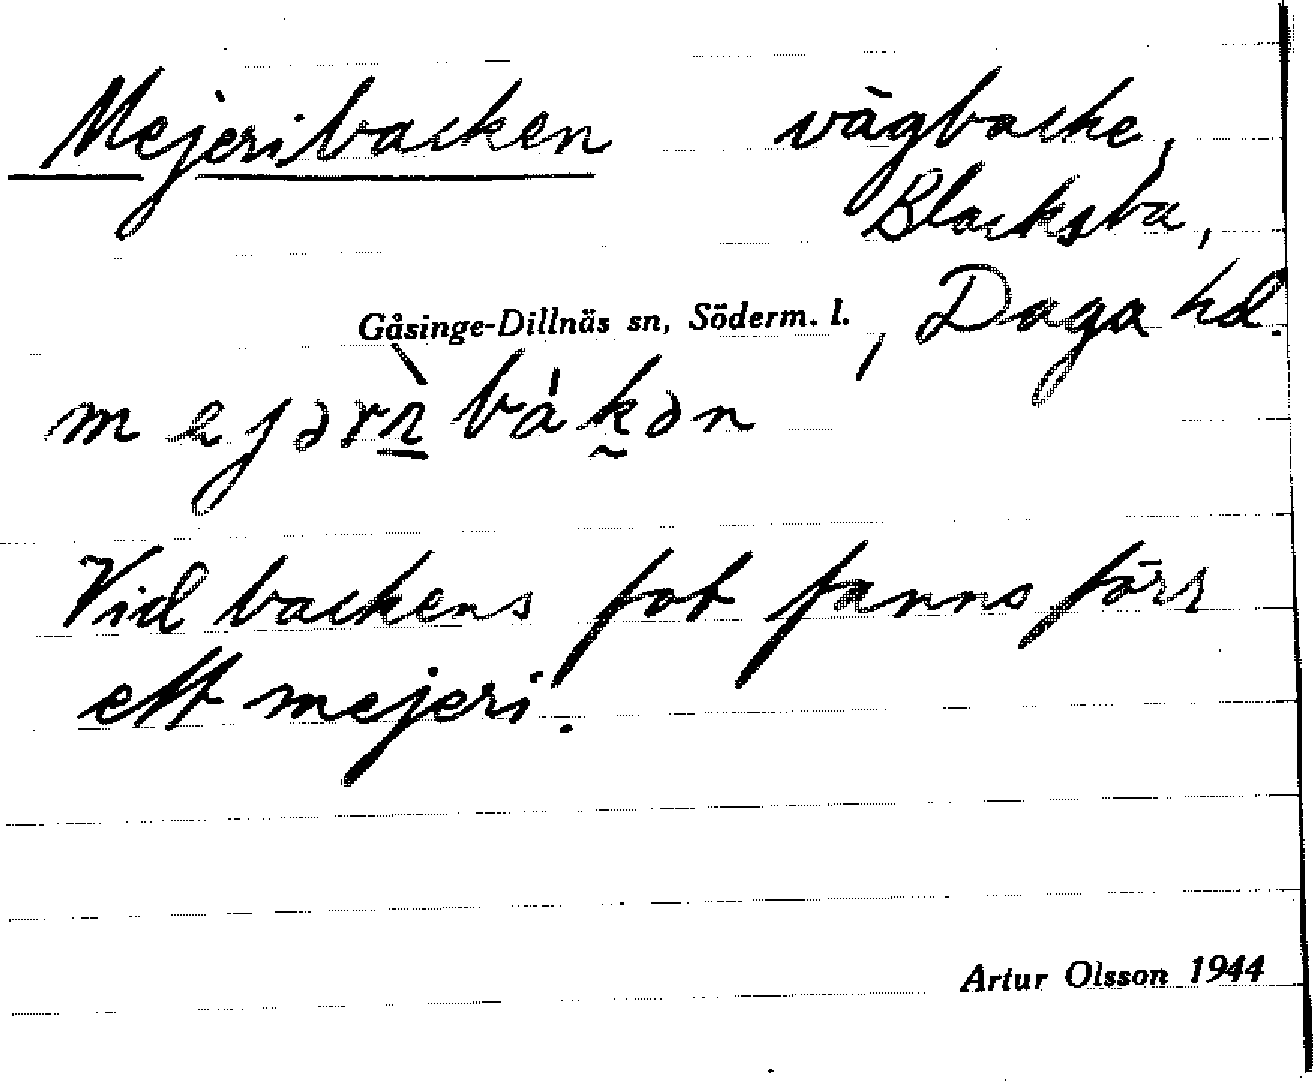 Mejeribacken vägbacke,
Blacksta,
Gåsinge-Dillnäs sn, Söderm. l., Daga hd.
Vid backens fot fanns förr
ett mejeri.
Artur Olsson 1944